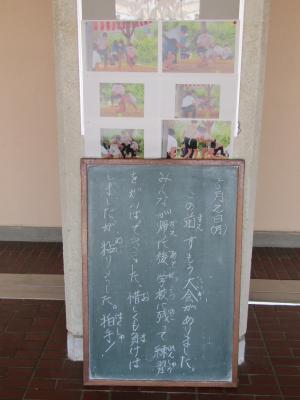 この前、すもう大会がありました。
みんなが帰った後、学校に残って練習
をがんばってきました。惜しくも負けは
しましたが、粘りました。拍手!